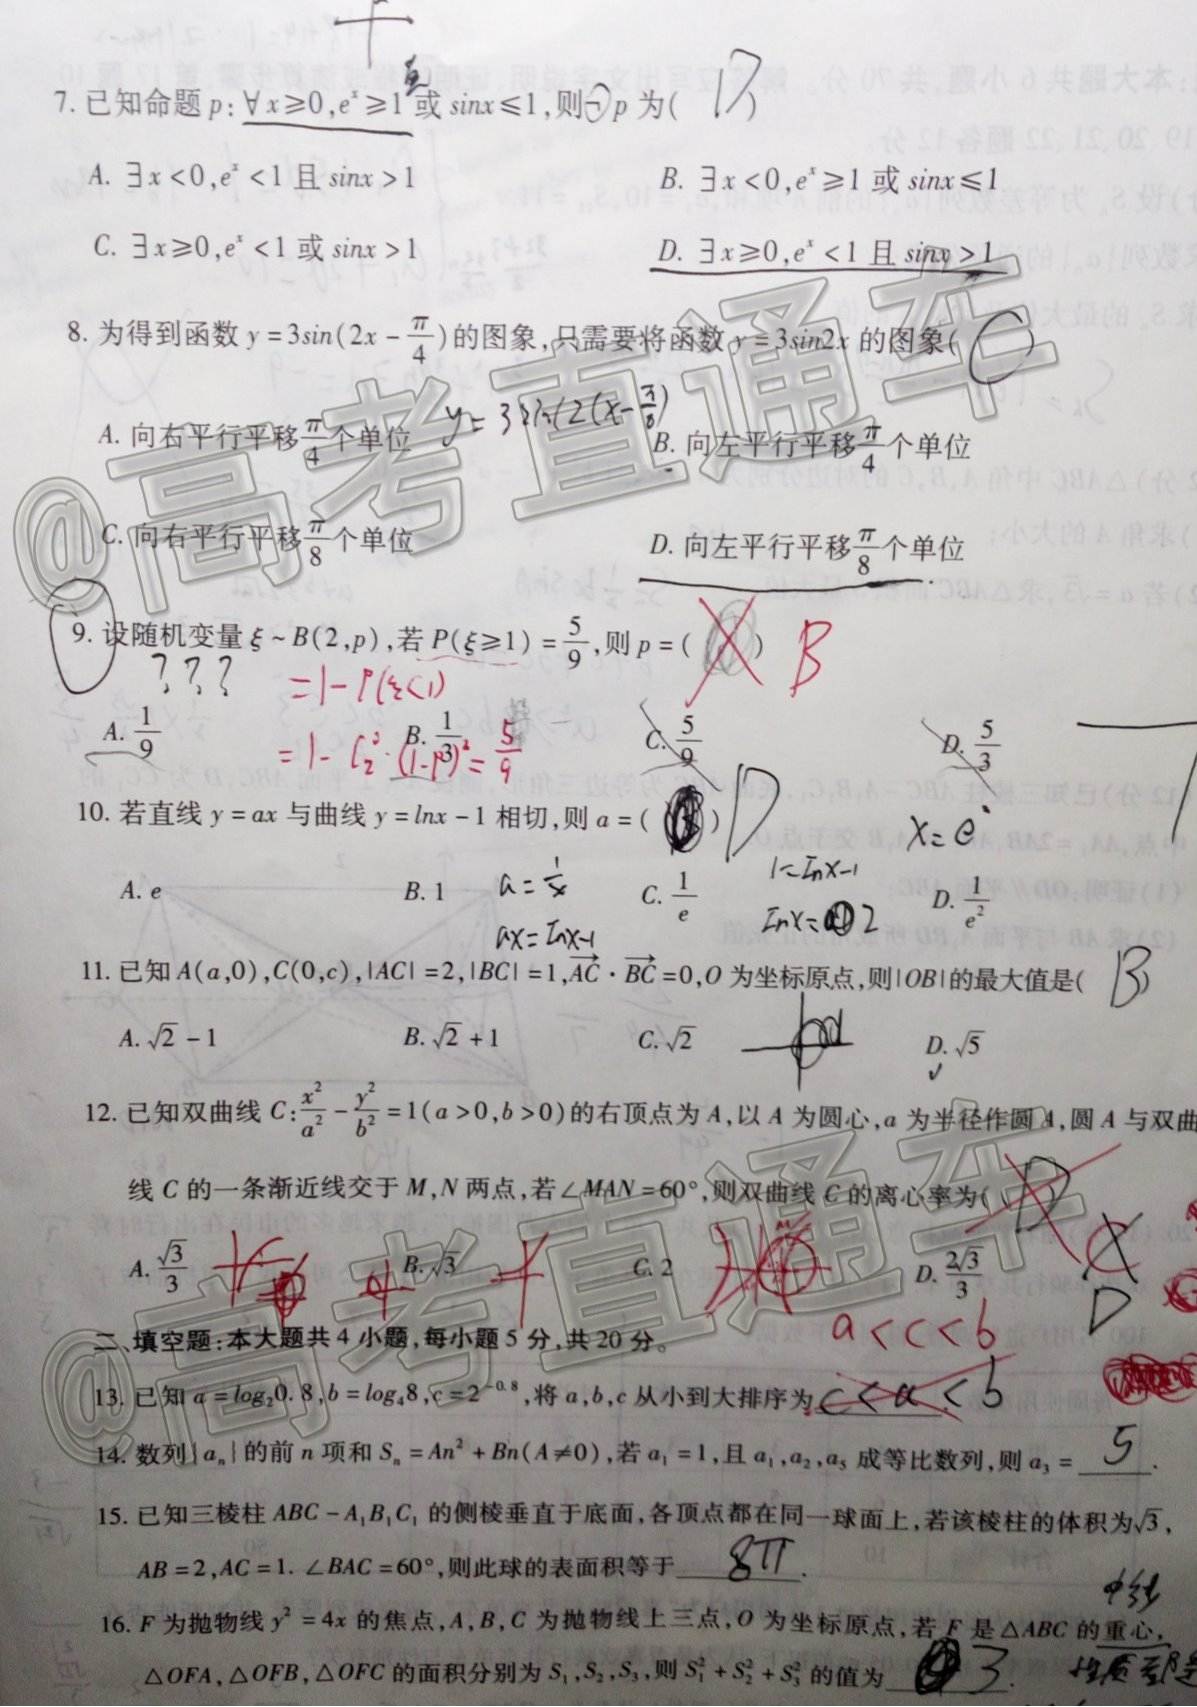 7. 已知命题 p: ∀x≥0,eˣ≥1 或 sinx≤1,则¬p 为( D )
A. ∃x<0,eˣ<1 且 sinx>1
B. ∃x<0,eˣ≥1 或 sinx≤1
C. ∃x≥0,eˣ<1 或 sinx>1
D. ∃x≥0,eˣ<1 且 sinx>1
8. 为得到函数 y=3sin(2x-π/4)的图象,只需要将函数 y=3sin2x 的图象( C )
y=3sin(2(x-π/8)
A. 向右平行平移π/4个单位
B. 向左平行平移π/4个单位
C. 向右平行平移π/8个单位
D. 向左平行平移π/8个单位
9. 设随机变量 ξ~B(2,p),若 P(ξ≥1)=5/9,则 p=( ) B
???
=1-P(ξ<1)
A. 1/9
B. 1/3
C. 5/9
D. 5/3
=1-C₂⁰·(1-P)²=5/9
10. 若直线 y=ax 与曲线 y=lnx-1 相切,则 a=( ) D
A. e
B. 1
C. 1/e
D. 1/e²
a=1/x
ax=lnx-1
1=lnx-1
lnx=2
11. 已知 A(a,0),C(0,c),|AC|=2,|BC|=1,AC·BC=0,O 为坐标原点,则|OB|的最大值是( B )
A. √2-1
B. √2+1
C. √2
D. √5
12. 已知双曲线 C:x²/a²-y²/b²=1(a>0,b>0)的右顶点为 A,以 A 为圆心,a 为半径作圆 A,圆 A 与双曲
线 C 的一条渐近线交于 M,N 两点,若∠MAN=60°,则双曲线 C 的离心率为( D
A. √3/3
B. √3
C. 2
D. 2√3/3
D
二、填空题:本大题共 4 小题,每小题 5 分,共 20 分。
a<c<b
13. 已知 a=log₂0.8,b=log₄8,c=2⁻⁰·⁸,将 a,b,c 从小到大排序为 c<a<b
14. 数列{aₙ}的前 n 项和 Sₙ=An²+Bn(A≠0),若 a₁=1,且 a₁,a₂,a₅ 成等比数列,则 a₃= 5 .
15. 已知三棱柱 ABC-A₁B₁C₁ 的侧棱垂直于底面,各顶点都在同一球面上,若该棱柱的体积为√3,
AB=2,AC=1.∠BAC=60°,则此球的表面积等于 8π .
16. F 为抛物线 y²=4x 的焦点,A,B,C 为抛物线上三点,O 为坐标原点,若 F 是△ABC 的重心,
中线
△OFA,△OFB,△OFC 的面积分别为 S₁,S₂,S₃,则 S₁²+S₂²+S₃² 的值为 3 .
@高考直通车
@高考直通车